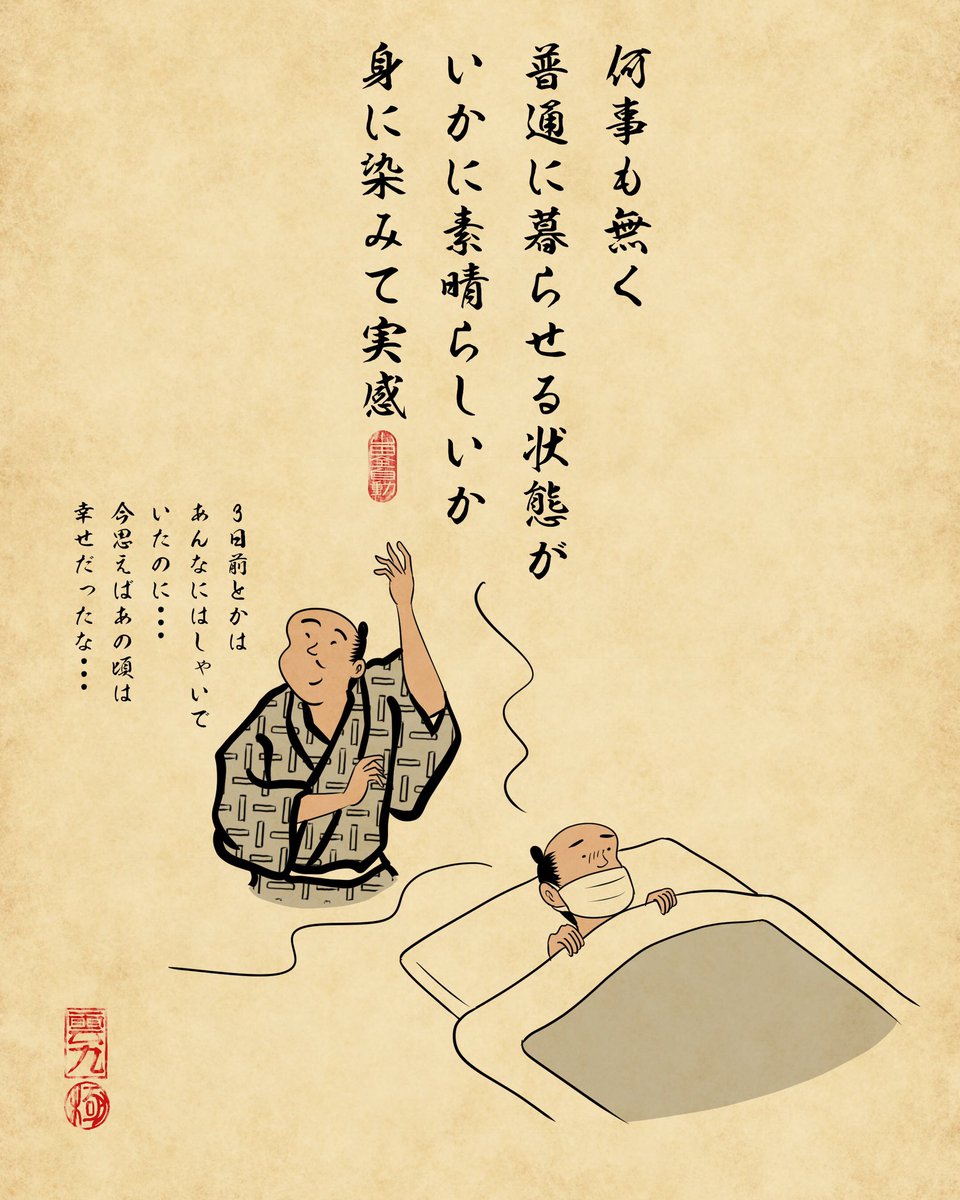 何事も無く
普通に暮らせる状態が
いかに素晴らしいか
身に染みて実感
3日前とかは
あんなにはしゃいで
いたのに・・・
今思えばあの頃は
幸せだったな・・・